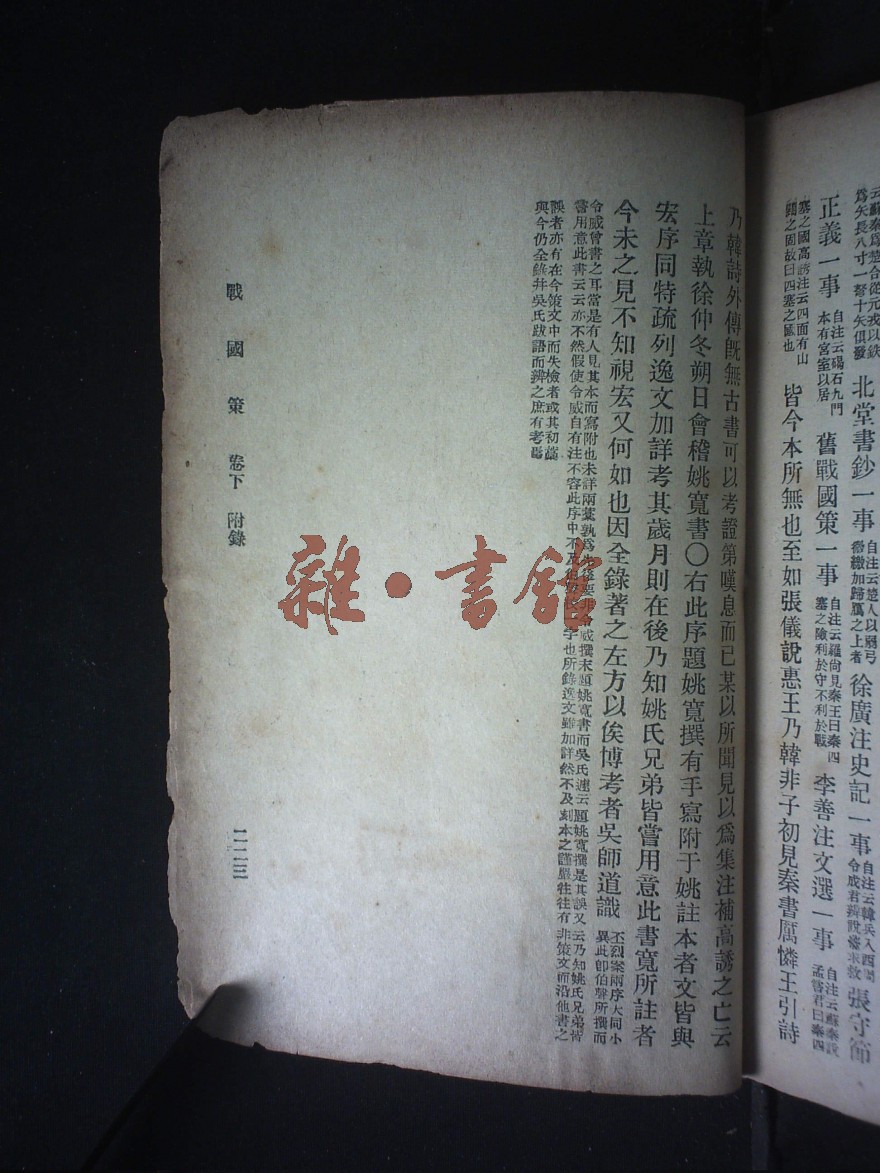 云蘇秦爲楚合從元戎以鉄
爲矢長八寸一弩十矢俱發
北堂書鈔一事
自注云楚人以弱弓
微繳加歸鴈之上者
徐廣注史記一事
自注云韓兵入西周
令成君辨說秦求救
張守節
正義一事
自注云碣石九門
本有宮室以居
舊戰國策一事
自注云羅尙見秦王曰秦四
塞之險利於守不利於戰
李善注文選一事
自注云蘇秦說
孟嘗君曰秦四
塞之國高誘注云四面有山
關之固故曰四塞之國也
皆今本所無也至如張儀說惠王乃韓非子初見秦書厲憐王引詩
乃韓詩外傳旣無古書可以考證第嘆息而已某以所聞見以爲集注補高誘之亡云
上章執徐仲冬朔日會稽姚寬書〇右此序題姚寬撰有手寫附于姚註本者文皆與
宏序同特疏列逸文加詳考其歲月則在後乃知姚氏兄弟皆嘗用意此書寬所註者
今未之見不知視宏又何如也因全錄著之左方以俟博考者吳師道識
丕烈案兩序大同小
異此卽伯聲所撰而
令威曾書之耳當是有人見其本而寫附也未詳兩藁孰爲先後要非令威撰末題姚寬書而吳氏連云題姚寬撰是其誤又云乃知姚氏兄弟皆
嘗用意此書云云亦不然假使令威自有注不容此序中不及伯聲校一字也所錄逸文雖加詳然不及刻本之謹嚴往往有非策文而沿他書之
誤者亦有在今策文中而失檢者或其初藁
與今仍全錄幷吳氏跋語而辨之庶有考焉
戰國策 卷下 附錄
一二三
雜·書館